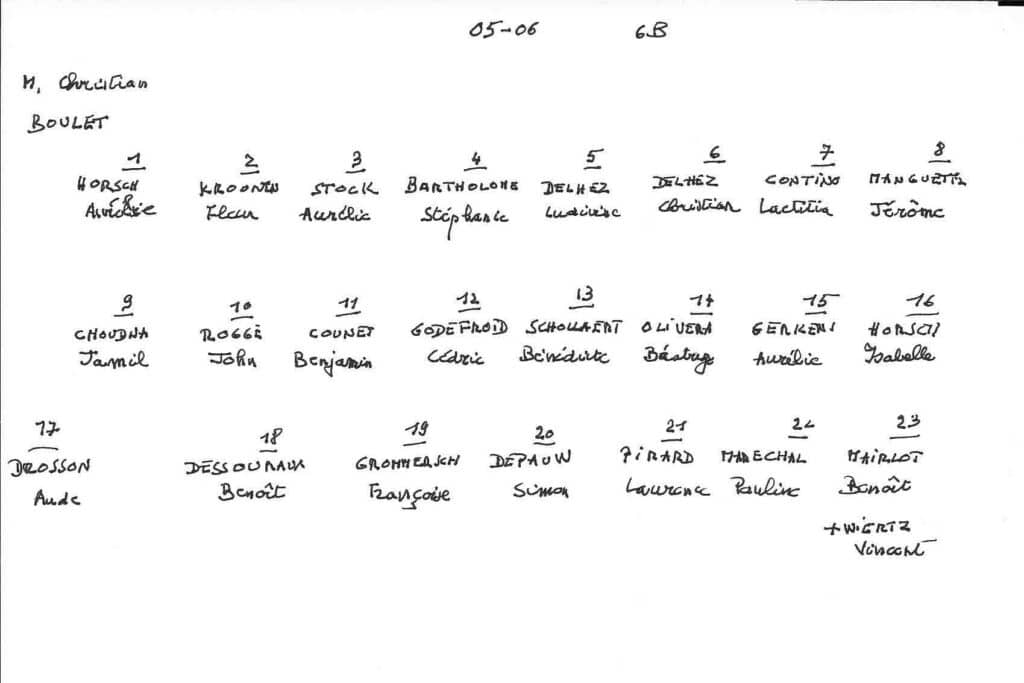 05-06 6B
M. Christian
BOULET
1 2 3 4 5 6 7 8
HORSCH KROONEN STOCK BARTHOLOME DELHEZ DELHEZ CONTINO MANGUETTE
Fleur Aurélie Stéphanie Ludivine Christian Laetitia Jérôme
9 10 11 12 13 14 15 16
CHOUDNA ROGGE COUNET GODEFROID SCHOLLAERT OLIVERA GERKENS HORSCH
Jamil John Benjamin Cédric Bénédicte Aurélie Isabelle
17 18 19 20 21 22 23
DROSSON DESSOURAUX GROMMERSCH DEPAUW PIRARD MARECHAL MAIRLOT
Aude Benoît Françoise Simon Laurence Pauline Benoît
+ WIERTZ
Vincent